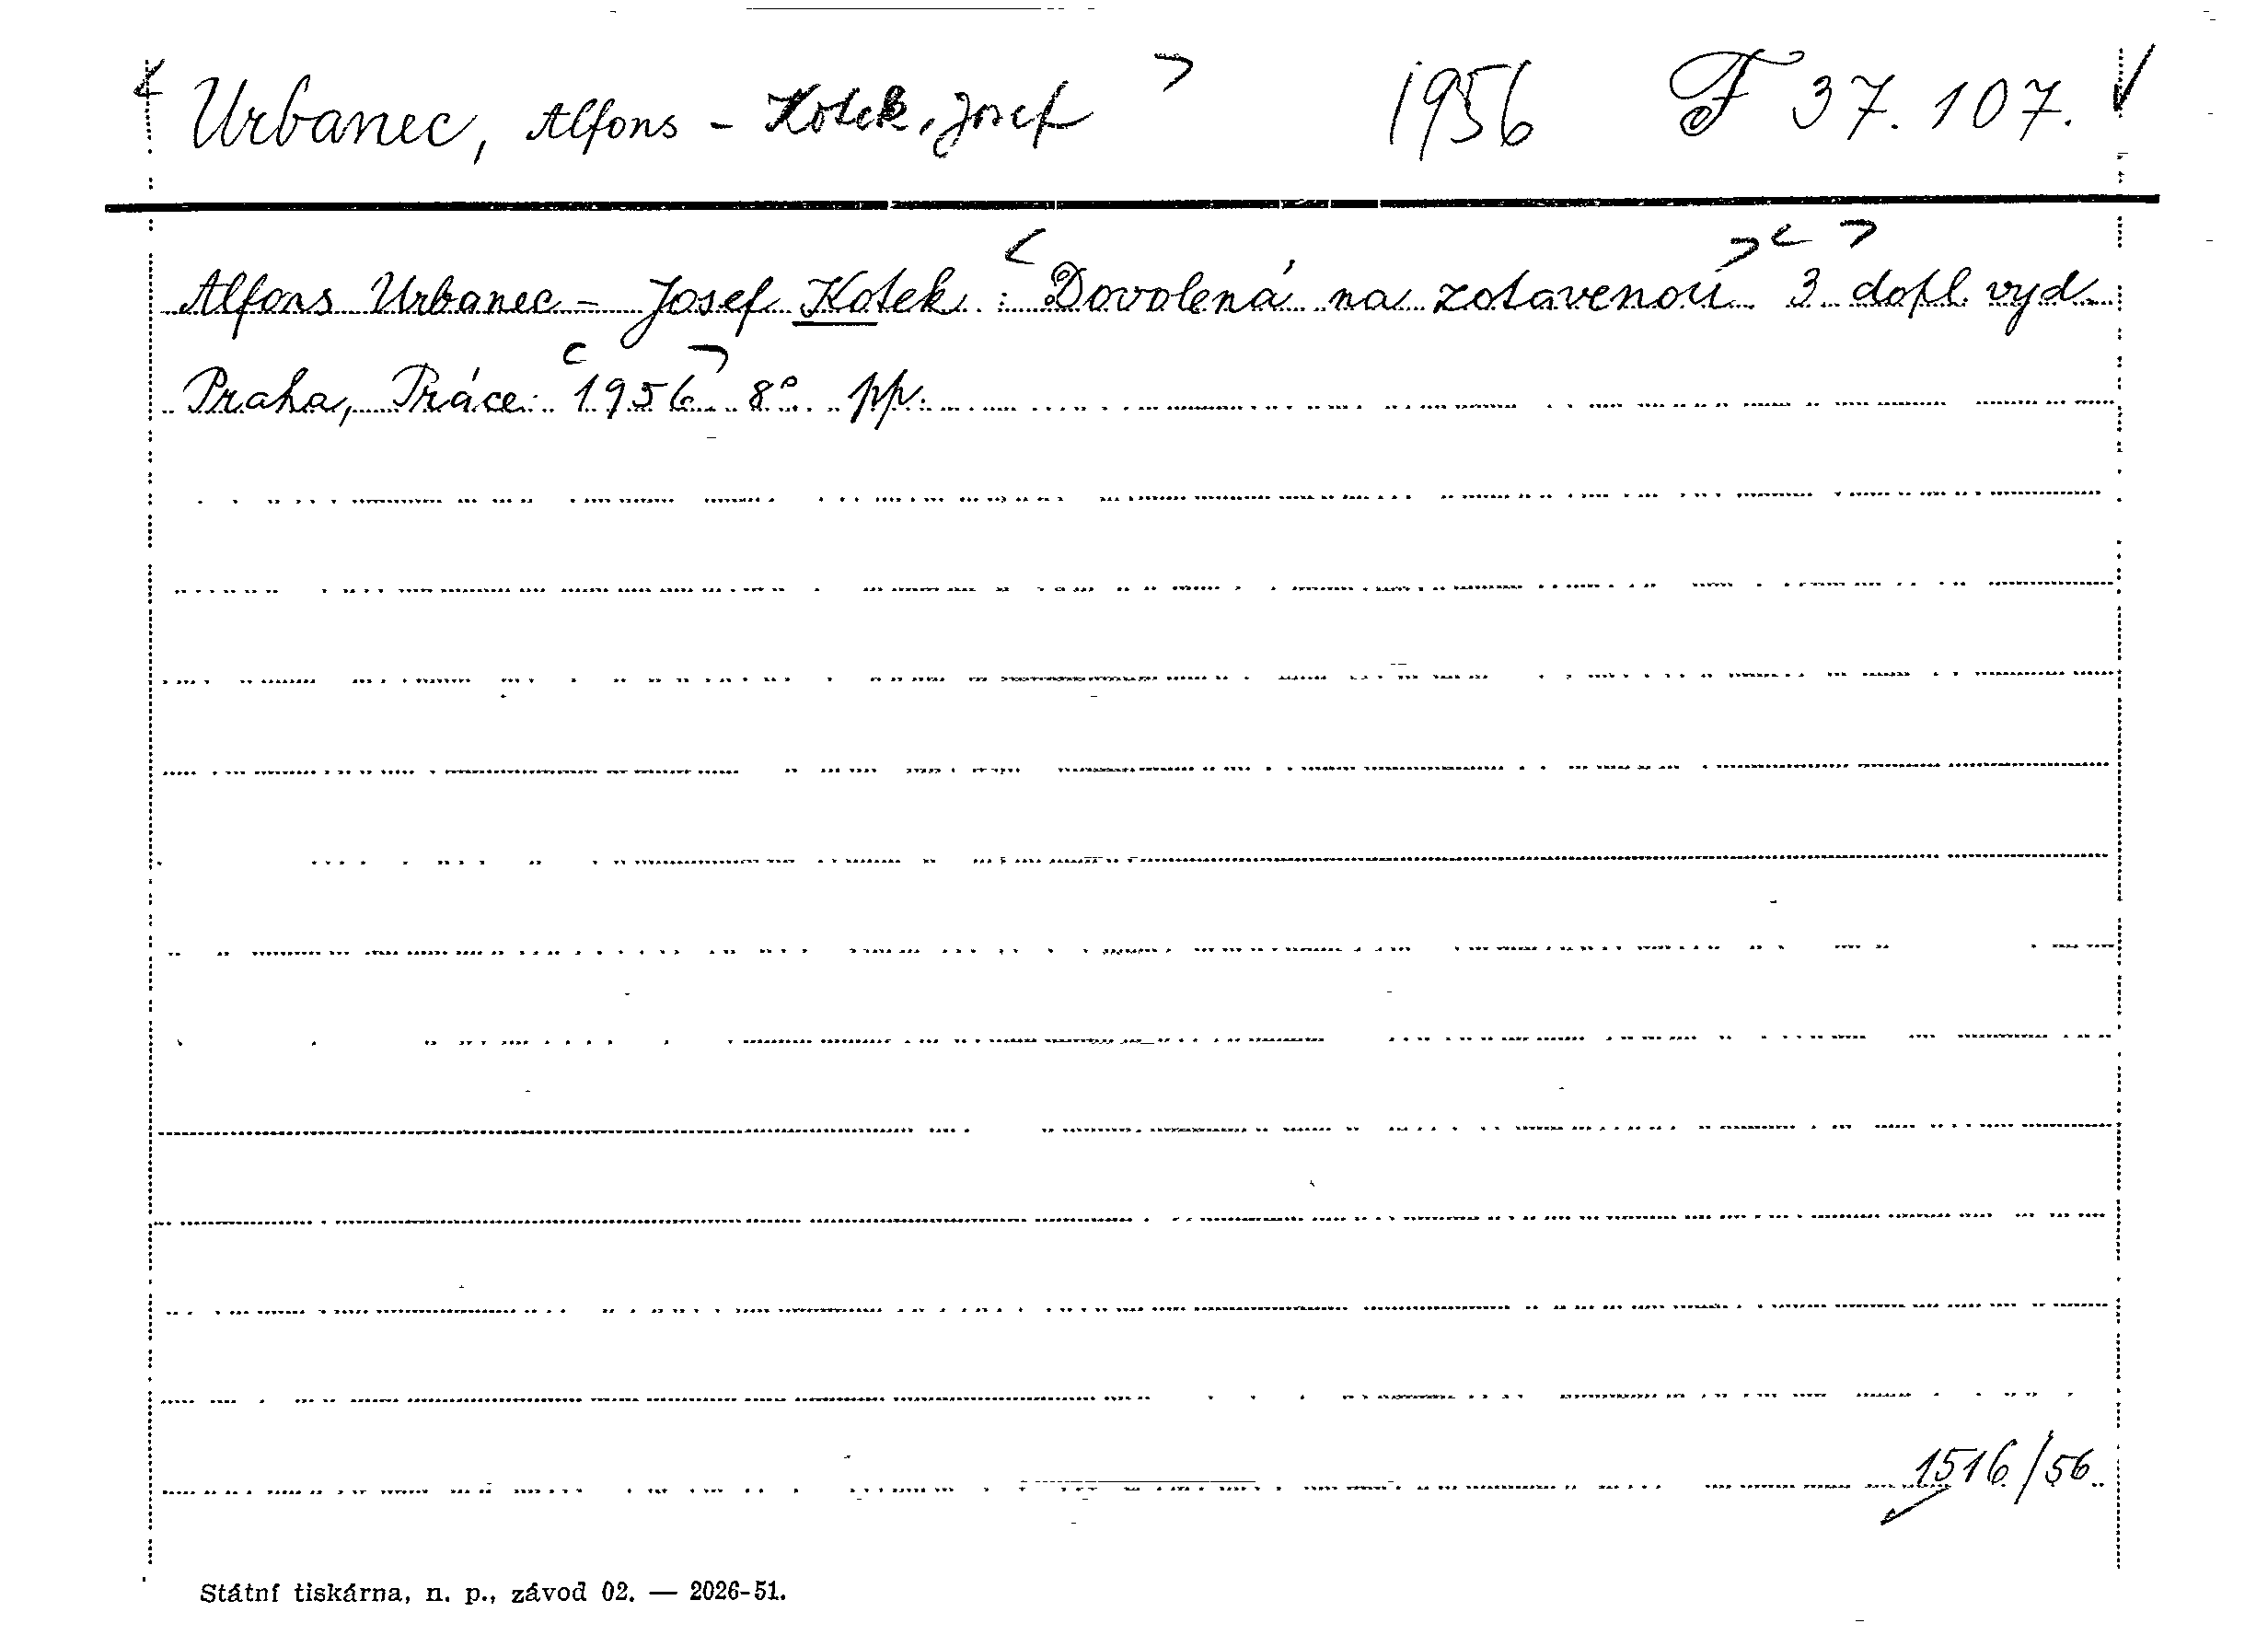 Urbanec, Alfons - Kotek, Josef 1956 F 37.107.
Alfons Urbanec - Josef Kotek : Dovolená na zotavenou 3 dopl. vyd.
Praha, Práce 1956 8° pp.
1516/56.
Státní tiskárna, n. p., závod 02. — 2026-51.